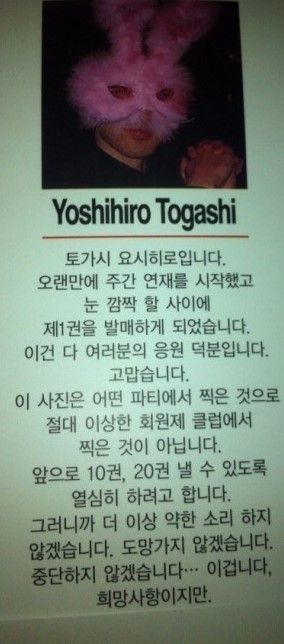 Yoshihiro Togashi
토가시 요시히로입니다.
오랜만에 주간 연재를 시작했고
눈 깜짝 할 사이에
제1권을 발매하게 되었습니다.
이건 다 여러분의 응원 덕분입니다.
고맙습니다.
이 사진은 어떤 파티에서 찍은 것으로
절대 이상한 회원제 클럽에서
찍은 것이 아닙니다.
앞으로 10권, 20권 낼 수 있도록
열심히 하려고 합니다.
그러니까 더 이상 약한 소리 하지
않겠습니다. 도망가지 않겠습니다.
중단하지 않겠습니다… 이겁니다,
희망사항이지만.